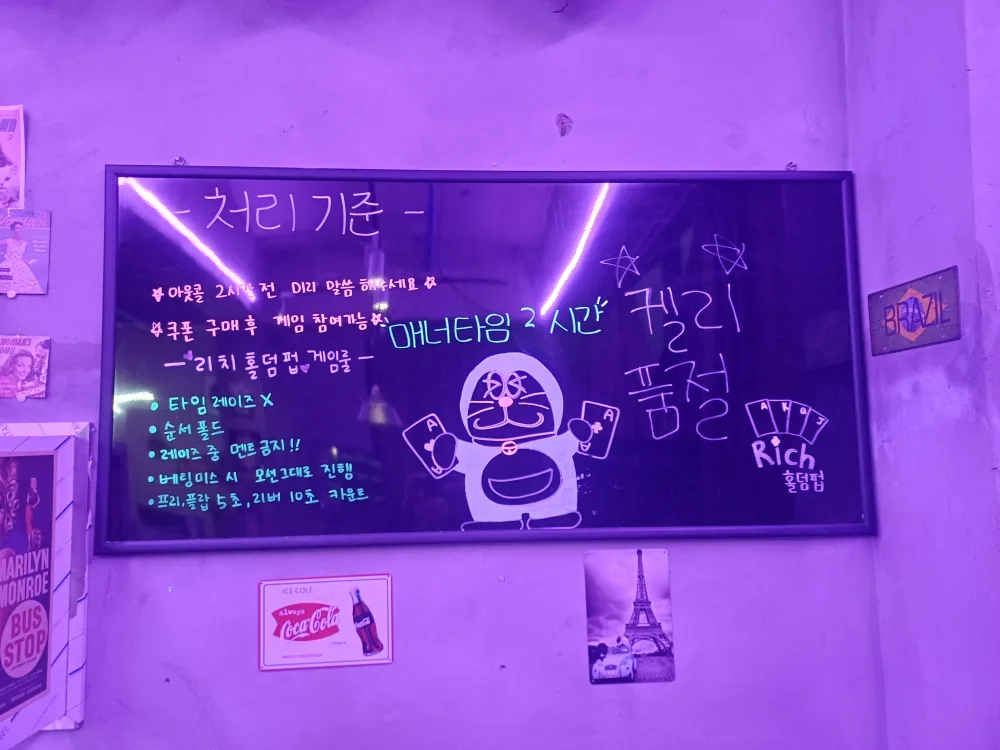 - 처리 기준 -
아웃콜 2시간 전 미리 말씀해주세요
쿠폰 구매 후 게임 참여가능
- 리치 홀덤펍 게임룰 -
• 타임 레이즈 X
• 순서 폴드
• 레이즈 중 멘트금지!!
• 베팅미스 시 모션그대로 진행
• 프리,플랍 5초, 리버 10초 카운트
매너타임 2시간
A
A
켈리
품절
A K Q J
Rich
홀덤펍
BRAZIL
MARILYN
MONROE
BUS
STOP
ICE COLD
always
Coca-Cola